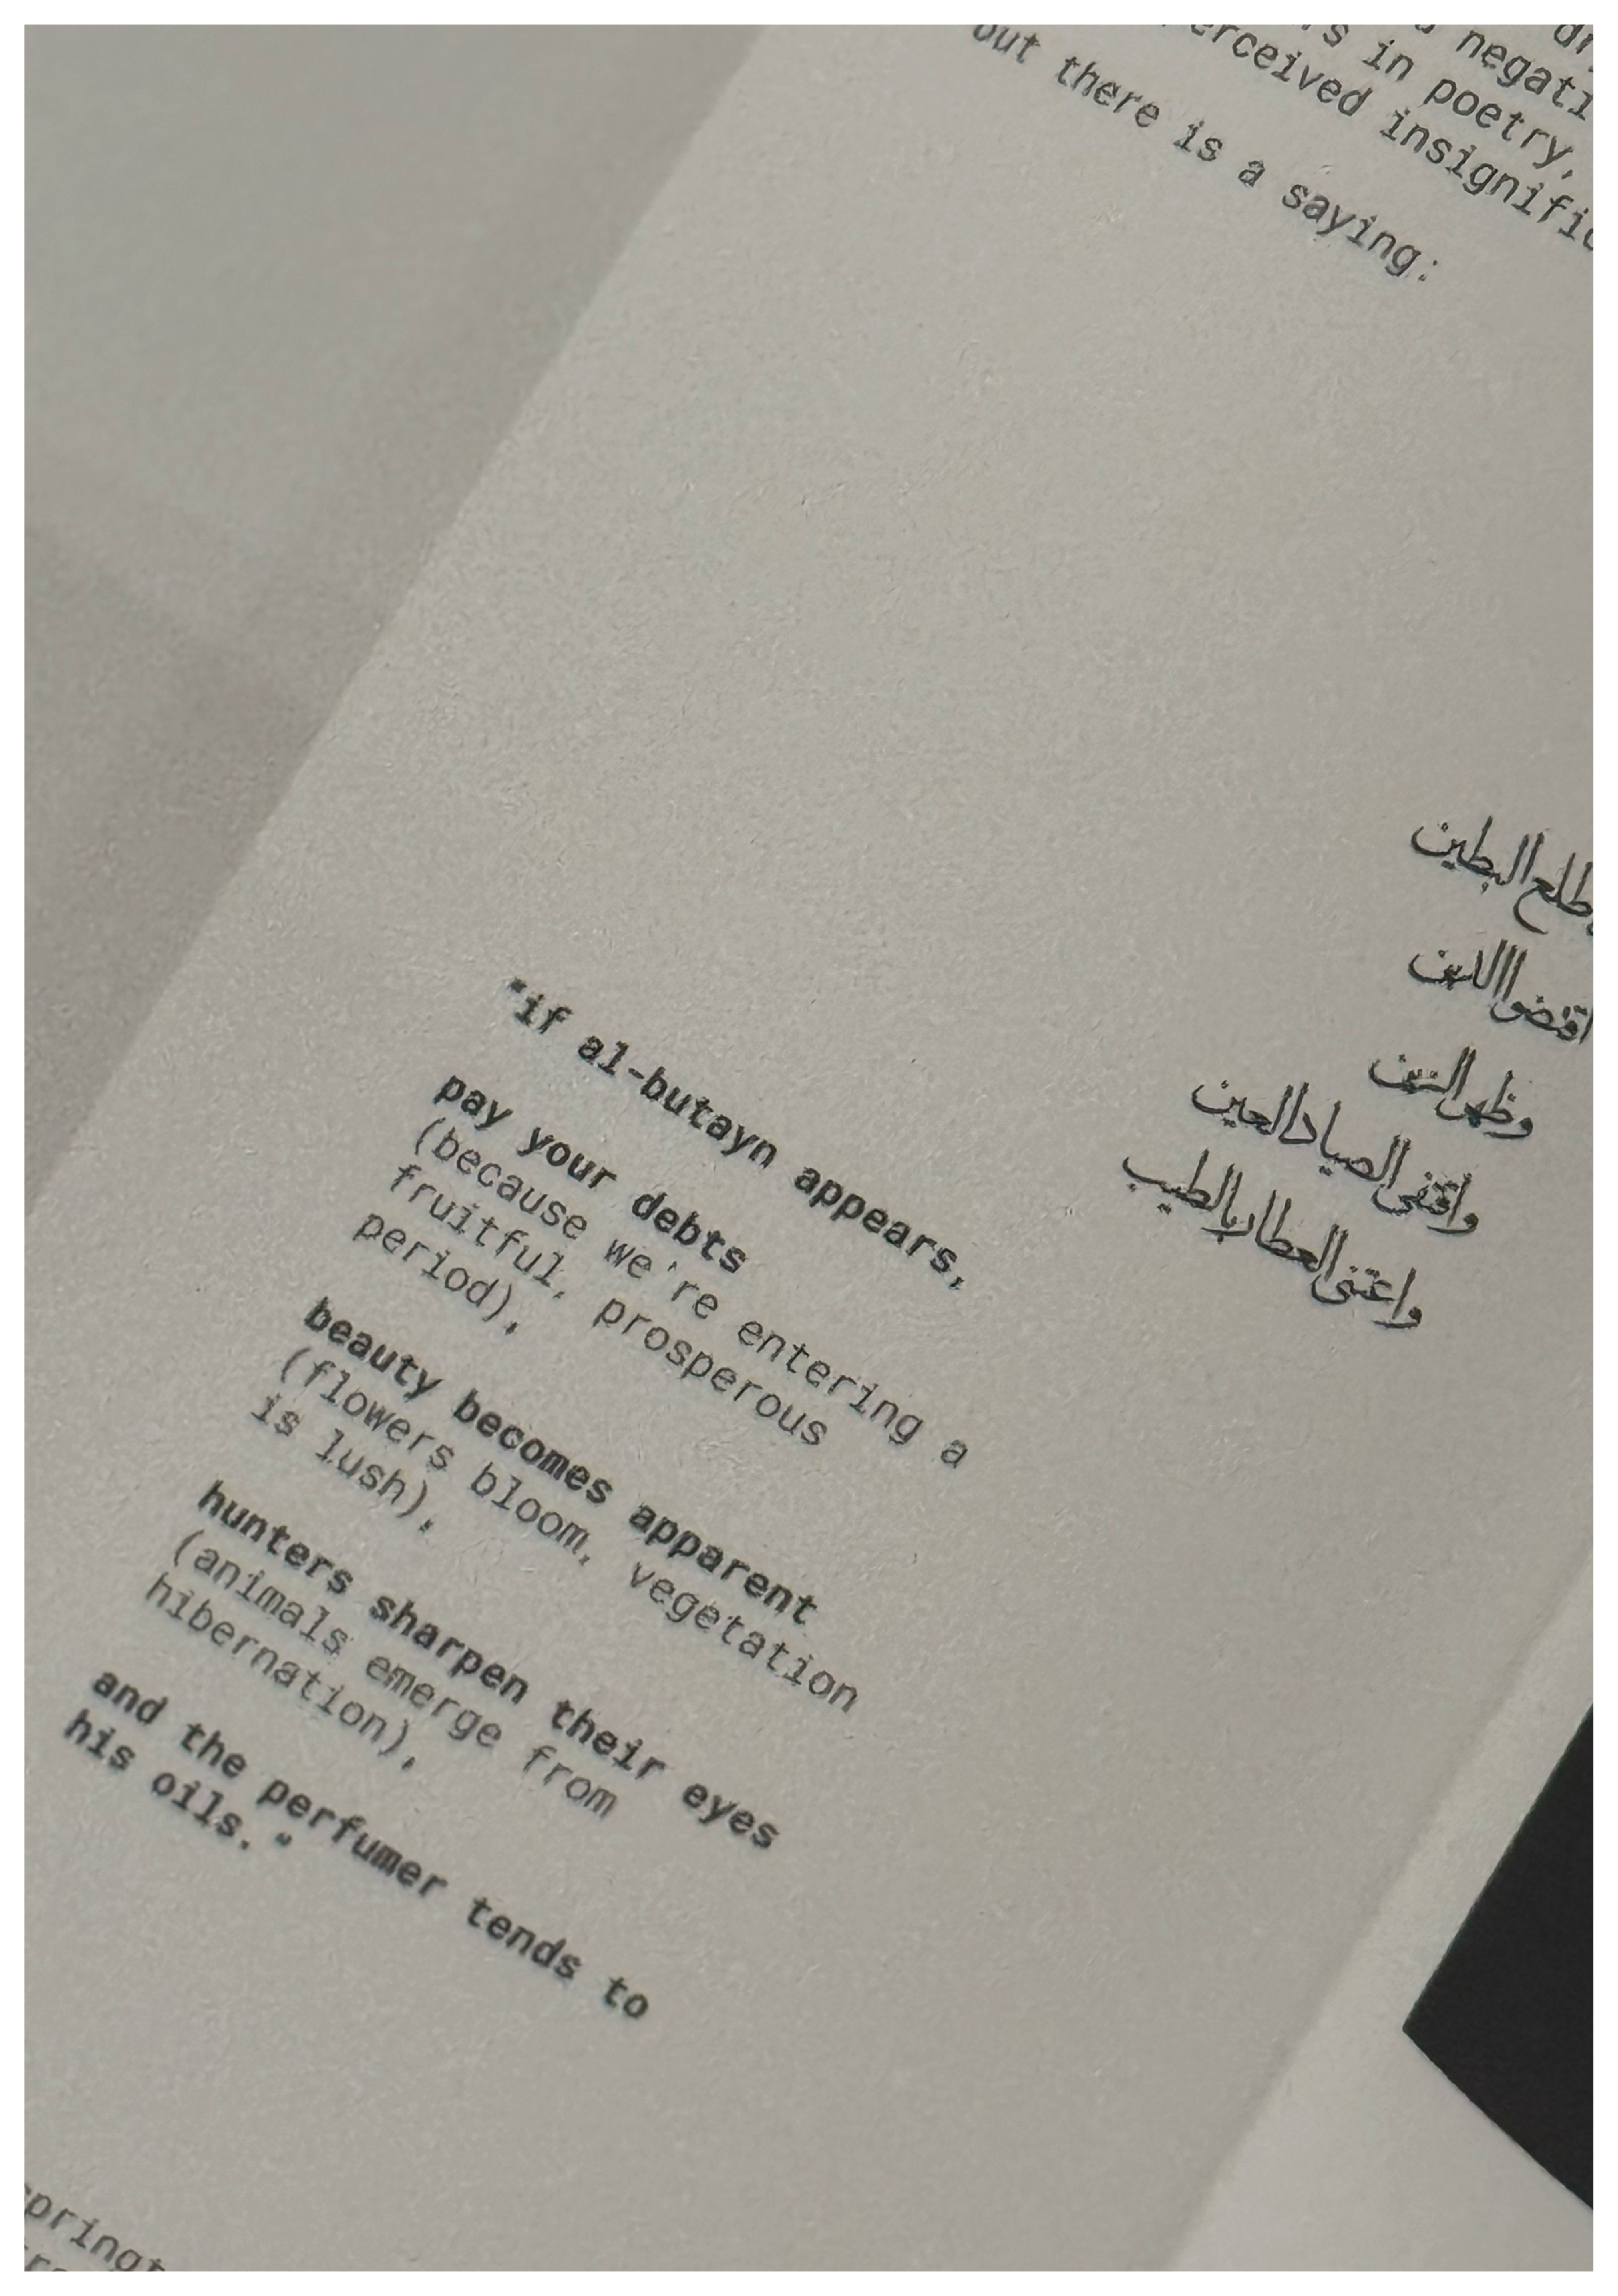 negati
s in poetry,
erceived insignific
but there is a saying:
طلع البطين
اقضوا الدين
وظهر الزين
واقتفى الصياد العين
واعتنى العطار بالطيب
"if al-butayn appears,
pay your debts
(because we're entering a
fruitful, prosperous
period),
beauty becomes apparent
(flowers bloom, vegetation
is lush),
hunters sharpen their eyes
(animals emerge from
hibernation),
and the perfumer tends to
his oils."